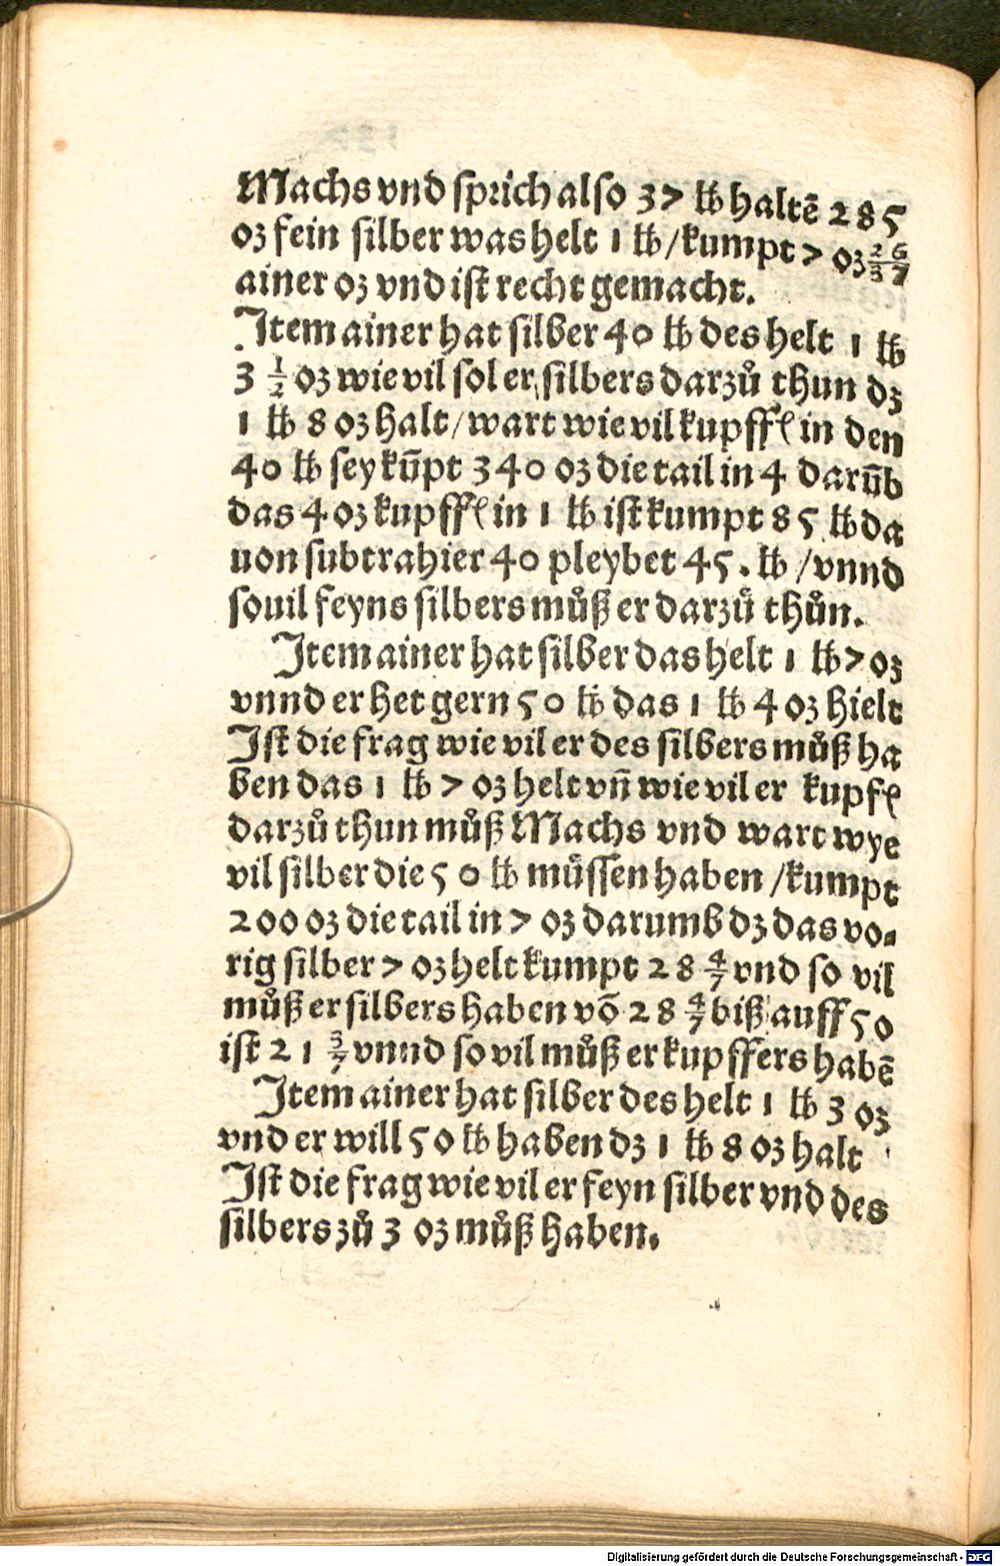 Machs vnd sprich also 37 ℔ haltē 285
oz fein silber was helt 1 ℔/kumpt 7 oz 26/37
ainer oz vnd ist recht gemacht.
Item ainer hat silber 40 ℔ des helt 1 ℔
3 1/2 oz wie vil sol er silbers darzů thun dz
1 ℔ 8 oz halt/wart wie vil kupffʼ in den
40 ℔ sey kūpt 340 oz die tail in 4 darūb
das 4 oz kupffʼ in 1 ℔ ist kumpt 85 ℔ da
uon subtrahier 40 pleybet 45. ℔ /vnnd
souil feyns silbers můß er darzů thůn.
Item ainer hat silber das helt 1 ℔ 7 oz
vnnd er het gern 50 ℔ das 1 ℔ 4 oz hielt
Ist die frag wie vil er des silbers můß ha
ben das 1 ℔ 7 oz helt vn̄ wie vil er kupfʼ
darzů thun můß Machs vnd wart wye
vil silber die 50 ℔ müssen haben /kumpt
200 oz die tail in 7 oz darumb dz das vo⸗
rig silber 7 oz helt kumpt 28 4/7 vnd so vil
můß er silbers haben vō 28 4/7 biß auff 50
ist 21 3/7 vnnd so vil můß er kupffers habē
Item ainer hat silber des helt 1 ℔ 3 oz
vnd er will 50 ℔ haben dz 1 ℔ 8 oz halt
Ist die frag wie vil er feyn silber vnd des
silbers zů 3 oz můß haben.
Digitalisierung gefördert durch die Deutsche Forschungsgemeinschaft - DFG